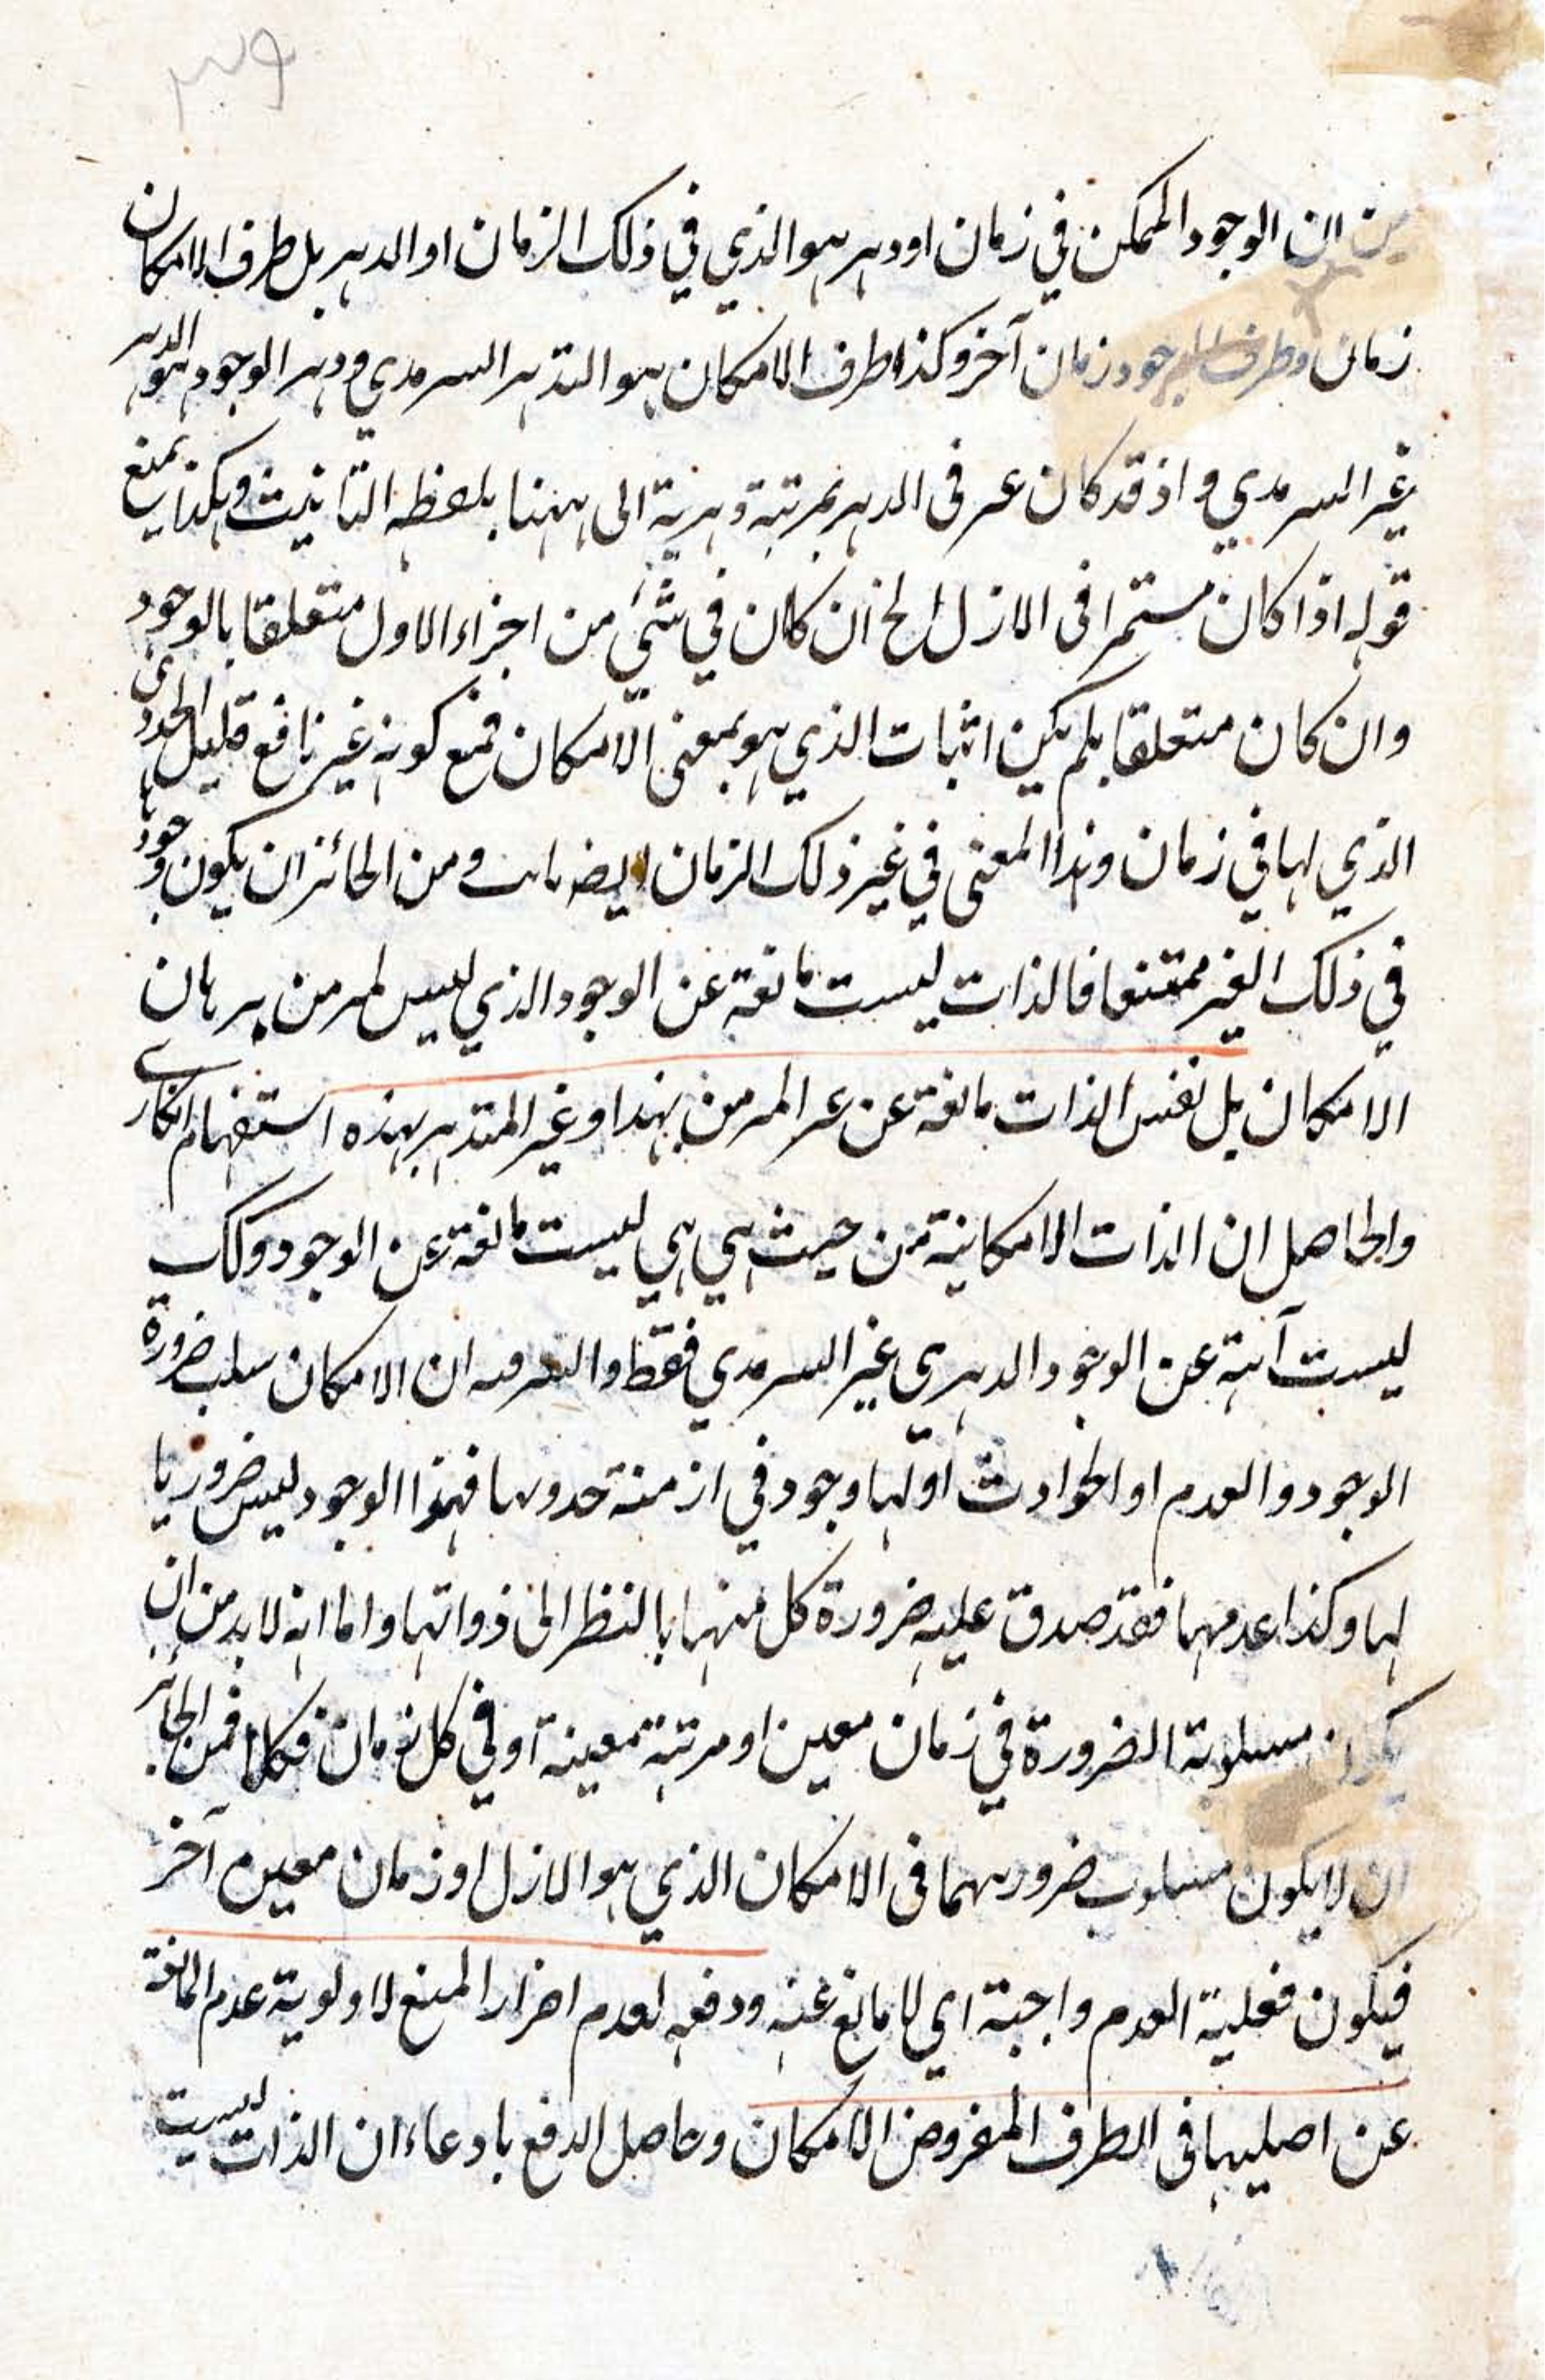 ٣٩
ان الوجود الممكن في زمان او دهر هو الذي في ذلك الزمان او الدهر بل ظرف الامكان
زمان وظرف الوجود زمان آخر وكذا ظرف الامكان هو الدهر السرمدي ودهر الوجود هو الدهر
غير السرمدي واذ قد كان عبر في الدهر بمرتبة دهرية الى ههنا بلفظه التانيث وهكذا يمنع
قوله اذا كان مستمرا في الازل الخ ان كان في شئ من اجزاء الاول متعلقا بالوجود
وان كان متعلقا بلم يكن اثبات الذي هو بمعنى الامكان فمنع كونه غير نافع
الذي لها في زمان وهذا المعنى في غير ذلك الزمان ايضا ومن الجائز ان يكون وجودها
في ذلك الغير ممتنعا فالذات ليست مانعة عن الوجود الذي ليس
الامكان بل نفس الذات مانعة عن بهذا وغير بهذه استفهام انكاري
والحاصل ان الذات الامكانية من حيث هي هي ليست مانعة عن الوجود وكك
ليست آبية عن الوجود الدهري غير السرمدي فقط ان الامكان سلب ضرورة
الوجود والعدم او الحوادث اولها وجود في ازمنة حدوثها فهذا الوجود ليس ضروريا
لها وكذا عدمها فقد صدق عليه ضرورة كل منهما بالنظر الى ذواتها واما انه لا بد من ان
يكون مسلوبة الضرورة في زمان معين او مرتبة معينة او في كل زمان فكلا فمن الجائز
ان لا يكون مسلوب ضرورتهما في الامكان الذي هو الازل او زمان معين آخر
فيكون فعلية العدم واجبة اي لا مانع عنه ودفعه لعدم اضرار المنع لاولوية عدم المانعة
عن اصليها في الظرف المفروض الامكان وحاصل الدفع بادعاء ان الذات ليست